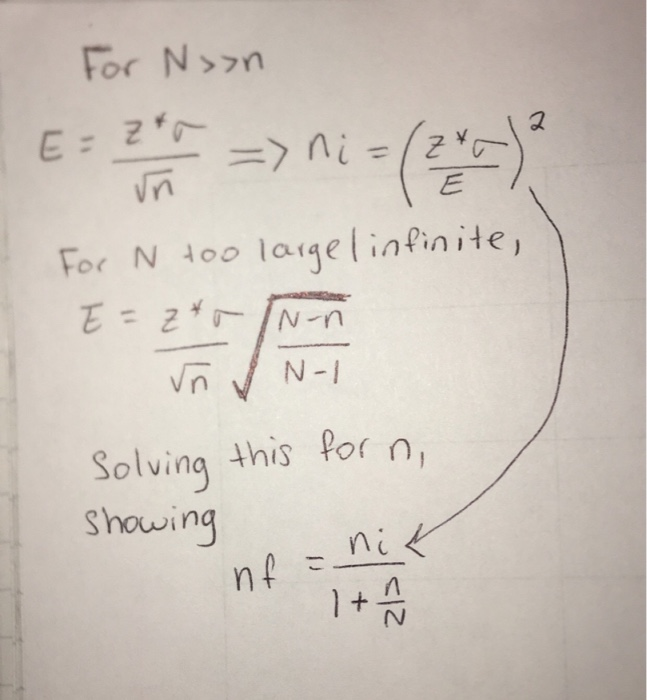 For N >> n
E = z*σ/√n => ni = (z*σ/E)²
For N too large/infinite,
E = z*σ/√n √(N-n/N-1)
Solving this for n,
showing
nf = ni/(1 + n/N)